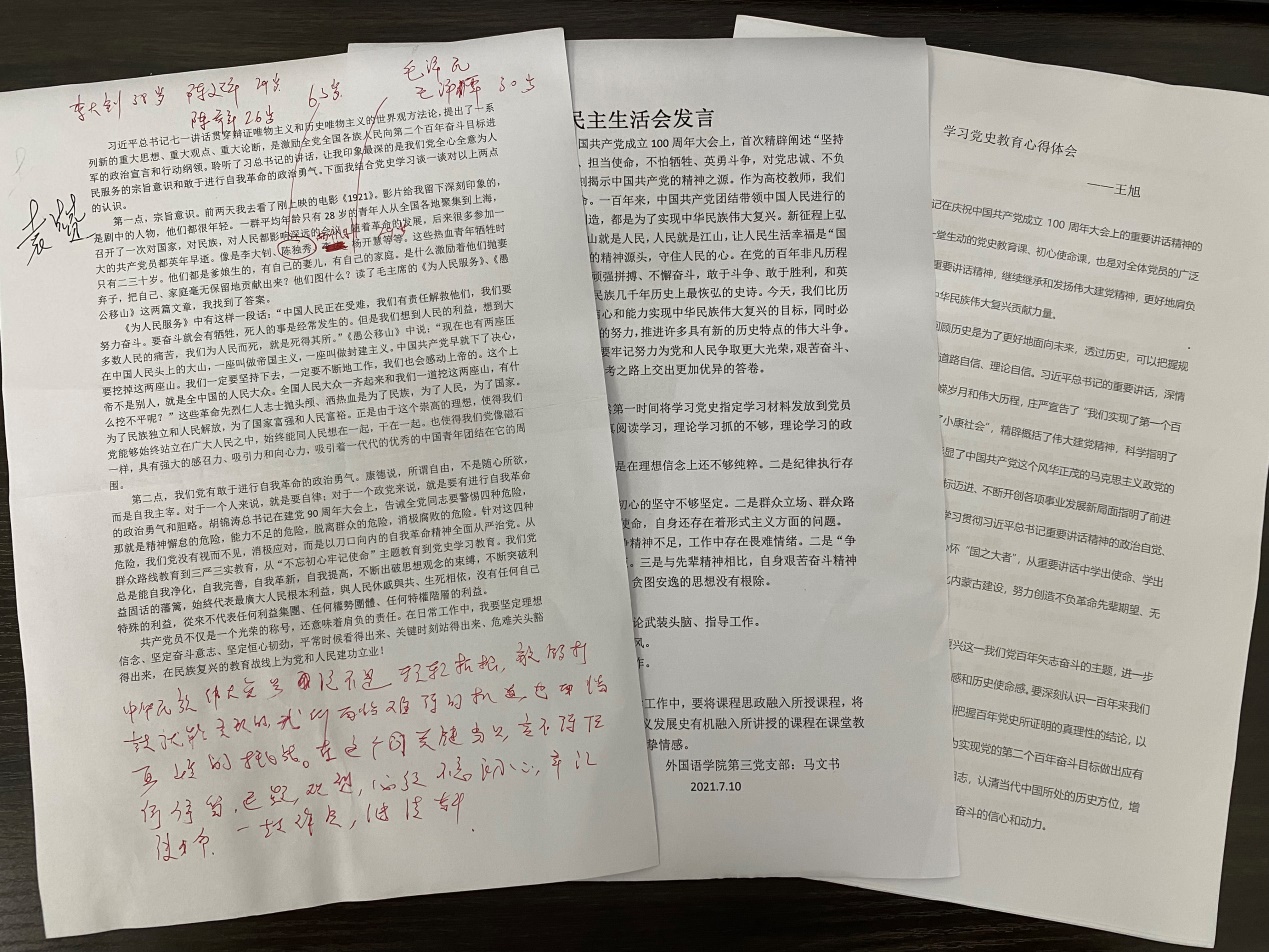 李大钊 38岁 陈延年 29岁
陈乔年 26岁
63岁
毛泽民
毛泽覃 30岁
袁
习近平总书记七一讲话贯穿辩证唯物主义和历史唯物主义的世界观方法论，提出了一系
列新的重大思想、重大观点、重大论断，是激励全党全国各族人民向第二个百年奋斗目标进
军的政治宣言和行动纲领。聆听了习总书记的讲话，让我印象最深的是我们党全心全意为人
民服务的宗旨意识和敢于进行自我革命的政治勇气。下面我结合党史学习谈一谈对以上两点
的认识。
第一点，宗旨意识。前两天我去看了刚上映的电影《1921》，影片给我留下深刻印象的，
是剧中的人物，他们都很年轻。一群平均年龄只有 28 岁的青年人从全国各地聚集到上海，
召开了一次对国家，对民族，对人民都影响深远的会议。随着革命的发展，后来很多参加一
大的共产党员都英年早逝。像是李大钊、陈独秀、 杨开慧等等。这些热血青年牺牲时
只有二三十岁。他们都是爹娘生的，有自己的妻儿，有自己的家庭。是什么激励着他们抛妻
弃子，把自己、家庭毫无保留地贡献出来？他们图什么？读了毛主席的《为人民服务》、《愚
公移山》这两篇文章，我找到了答案。
《为人民服务》中有这样一段话：“中国人民正在受难，我们有责任解救他们，我们要
努力奋斗。要奋斗就会有牺牲，死人的事是经常发生的。但是我们想到人民的利益，想到大
多数人民的痛苦，我们为人民而死，就是死得其所。”《愚公移山》中说：“现在也有两座压
在中国人民头上的大山，一座叫做帝国主义，一座叫做封建主义，中国共产党早就下了决心，
要挖掉这两座山。我们一定要坚持下去，一定要不断地工作，我们也会感动上帝的。这个上
帝不是别人，就是全中国的人民大众。全国人民大众一齐起来和我们一道挖这两座山，有什
么挖不平呢？”这些革命先烈仁人志士抛头颅、洒热血是为了民族，为了人民，为了国家。
为了民族独立和人民解放，为了国家富强和人民富裕。正是由于这个崇高的理想，使得我们
党能够始终站立在广大人民之中，始终能同人民想在一起，干在一起。也使得我们党像磁石
一样，具有强大的感召力、吸引力和向心力，吸引着一代代的优秀的中国青年团结在它的周
围。
第二点，我们党有敢于进行自我革命的政治勇气。康德说，所谓自由，不是随心所欲，
而是自我主宰。对于一个人来说，就是要自律；对于一个政党来说，就是要有进行自我革命
的政治勇气和胆略。胡锦涛总书记在建党 90 周年大会上，告诫全党同志要警惕四种危险，
那就是精神懈怠的危险，能力不足的危险，脱离群众的危险，消极腐败的危险。针对这四种
危险，我们党没有视而不见，消极应对，而是以刀口向内的自我革命精神全面从严治党。从
群众路线教育到三严三实教育，从“不忘初心牢记使命”主题教育到党史学习教育。我们党
总是能自我净化，自我完善，自我革新，自我提高，不断出破思想观念的束缚，不断突破利
益固话的藩篱，始終代表最廣大人民根本利益，與人民休戚與共、生死相依，沒有任何自己
特殊的利益，從來不代表任何利益集團、任何權勢團體、任何特權階層的利益。
共产党员不仅是一个光荣的称号，还意味着肩负的责任。在日常工作中，我要坚定理想
信念、坚定奋斗意志、坚定恒心韧劲，平常时候看得出来、关键时刻站得出来、危难关头豁
得出来，在民族复兴的教育战线上为党和人民建功立业！
中华民族伟大复兴 不是 轻轻松松，敲锣打
鼓就能实现的，我们面临难得的机遇，也面临
严峻的挑战。在这个
民主生活会发言
国共产党成立 100 周年大会上，首次精辟阐述“坚持
、担当使命，不怕牺牲、英勇斗争，对党忠诚、不负
刻揭示中国共产党的精神之源。作为高校教师，我们
。一百年来，中国共产党团结带领中国人民进行的
造，都是为了实现中华民族伟大复兴。新征程上弘
山就是人民，人民就是江山，让人民生活幸福是“国
的精神源头，守住人民的心。在党的百年非凡历程
顽强拼搏、不懈奋斗，敢于斗争、敢于胜利，和英
民族几千年历史上最恢弘的史诗。今天，我们比历
信心和能力实现中华民族伟大复兴的目标，同时必
的努力，推进许多具有新的历史特点的伟大斗争。
要牢记努力为党和人民争取更大光荣，艰苦奋斗、
考之路上交出更加优异的答卷。
第一时间将学习党史指定学习材料发放到党员
真阅读学习，理论学习抓的不够，理论学习的政
是在理想信念上还不够纯粹。二是纪律执行存
初心的坚守不够坚定。二是群众立场、群众路
使命，自身还存在着形式主义方面的问题。
争精神不足，工作中存在畏难情绪。二是“争
。三是与先辈精神相比，自身艰苦奋斗精神
贪图安逸的思想没有根除。
论武装头脑、指导工作。
风。
作。
工作中，要将课程思政融入所授课程，将
义发展史有机融入所讲授的课程在课堂教
挚情感。
外国语学院第三党支部：马文书
2021.7.10
学习党史教育心得体会
——王旭
记在庆祝中国共产党成立 100 周年大会上的重要讲话精神的
堂生动的党史教育课、初心使命课，也是对全体党员的广泛
重要讲话精神，继续继承和发扬伟大建党精神，更好地肩负
中华民族伟大复兴贡献力量。
回顾历史是为了更好地面向未来，透过历史，可以把握规
道路自信、理论自信。习近平总书记的重要讲话，深情
嵘岁月和伟大历程，庄严宣告了“我们实现了第一个百
小康社会”，精辟概括了伟大建党精神，科学指明了
显了中国共产党这个风华正茂的马克思主义政党的
标迈进、不断开创各项事业发展新局面指明了前进
学习贯彻习近平总书记重要讲话精神的政治自觉、
怀“国之大者”，从重要讲话中学出使命、学出
内蒙古建设，努力创造不负革命先辈期望、无
复兴这一我们党百年矢志奋斗的主题，进一步
感和历史使命感。要深刻认识一百年来我们
把握百年党史所证明的真理性的结论，以
为实现党的第二个百年奋斗目标做出应有
志，认清当代中国所处的历史方位，增
奋斗的信心和动力。